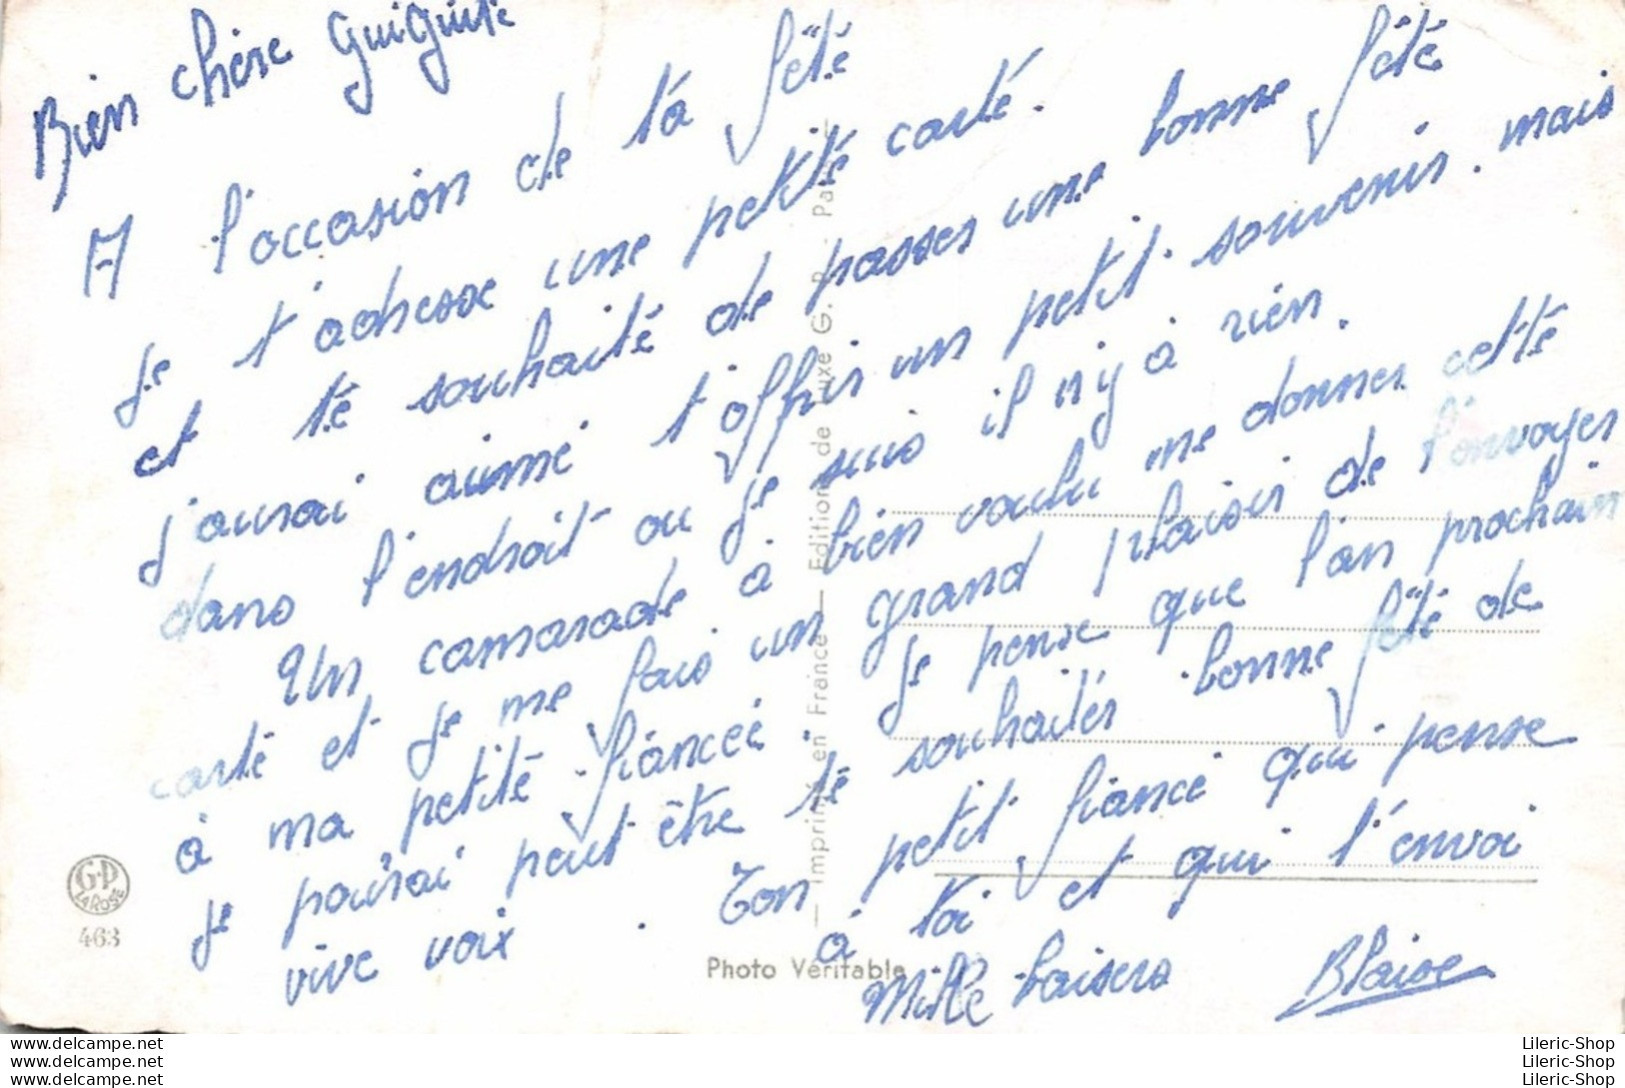 Bien chère GuiGuite
A l'occasion de ta fête
je t'adresse une petite carte.
et te souhaite de passer une bonne fête
j'aurai aimé t'offrir un petit souvenir. mais
dans l'endroit ou je suis il n'y à rien.
Un camarade à bien voulu me donner cette
carte et je me fais un grand plaisir de l'envoyer
à ma petite fiancée. je pense que l'an prochain
je pourrai peut être te souhaiter bonne fête de
vive voix. Ton petit fiancé qui pense
à toi et qui t'envoi
Mille baisers Blaise
Imprimé en France — Edition de Luxe G. P. Paris —
G.P
LA ROSE
463
Photo Véritable
Lileric-Shop.com
Lileric-Shop.com
Lileric-Shop.com
Lileric-Shop
Lileric-Shop
Lileric-Shop